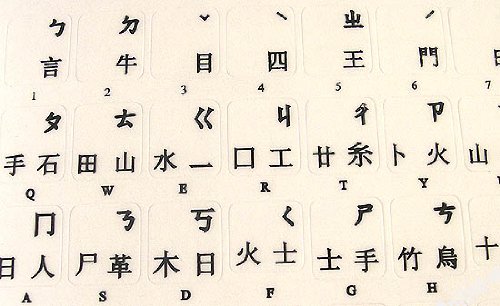 ㄅ ㄉ ˇ ˋ ㄓ ˊ
言 牛 目 四 王 門
1 2 3 4 5 6 7
ㄆ ㄊ ㄍ ㄐ ㄔ ㄗ
手 石 田 山 水 一 口 工 廿 糸 卜 火 山
Q W E R T Y
ㄇ ㄋ ㄎ ㄑ ㄕ ㄘ
日 人 尸 革 木 日 火 士 士 手 竹 烏 十
A S D F G H